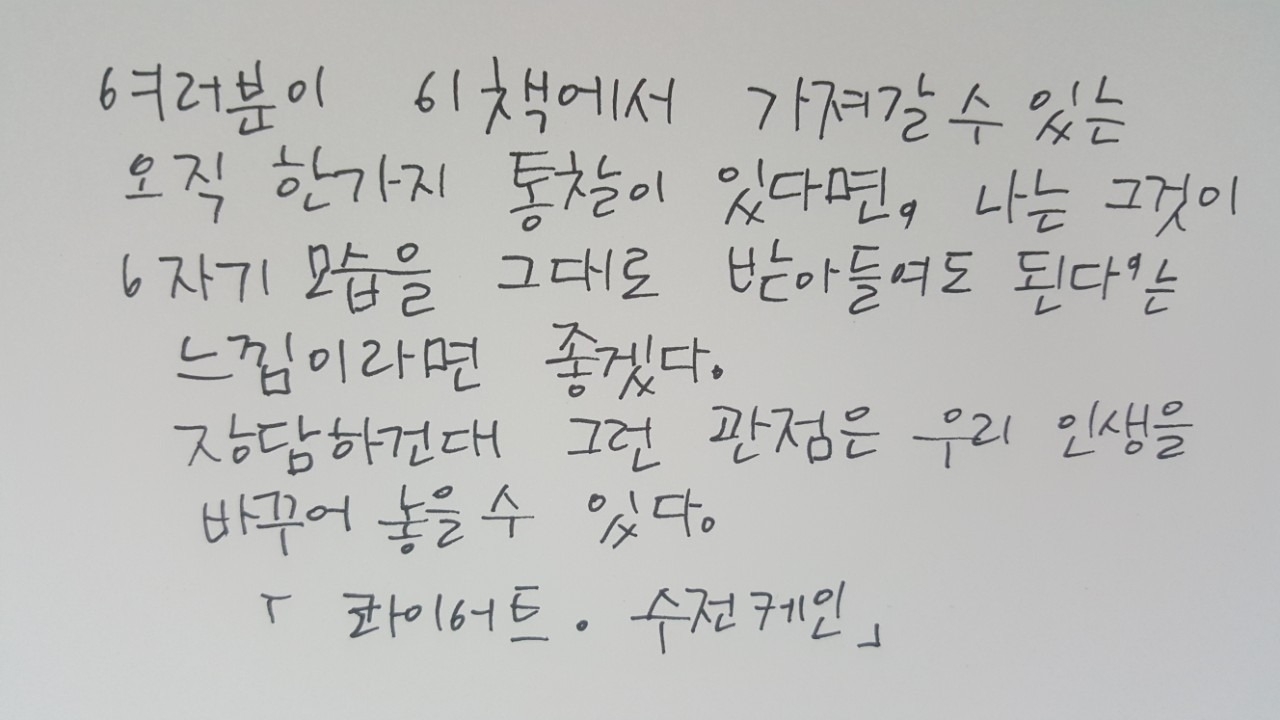 “여러분이 이 책에서 가져갈 수 있는
오직 한가지 통찰이 있다면, 나는 그것이
‘자기 모습을 그대로 받아들여도 된다’는
느낌이라면 좋겠다.
장담하건대 그런 관점은 우리 인생을
바꾸어 놓을 수 있다.
「콰이어트. 수전케인」